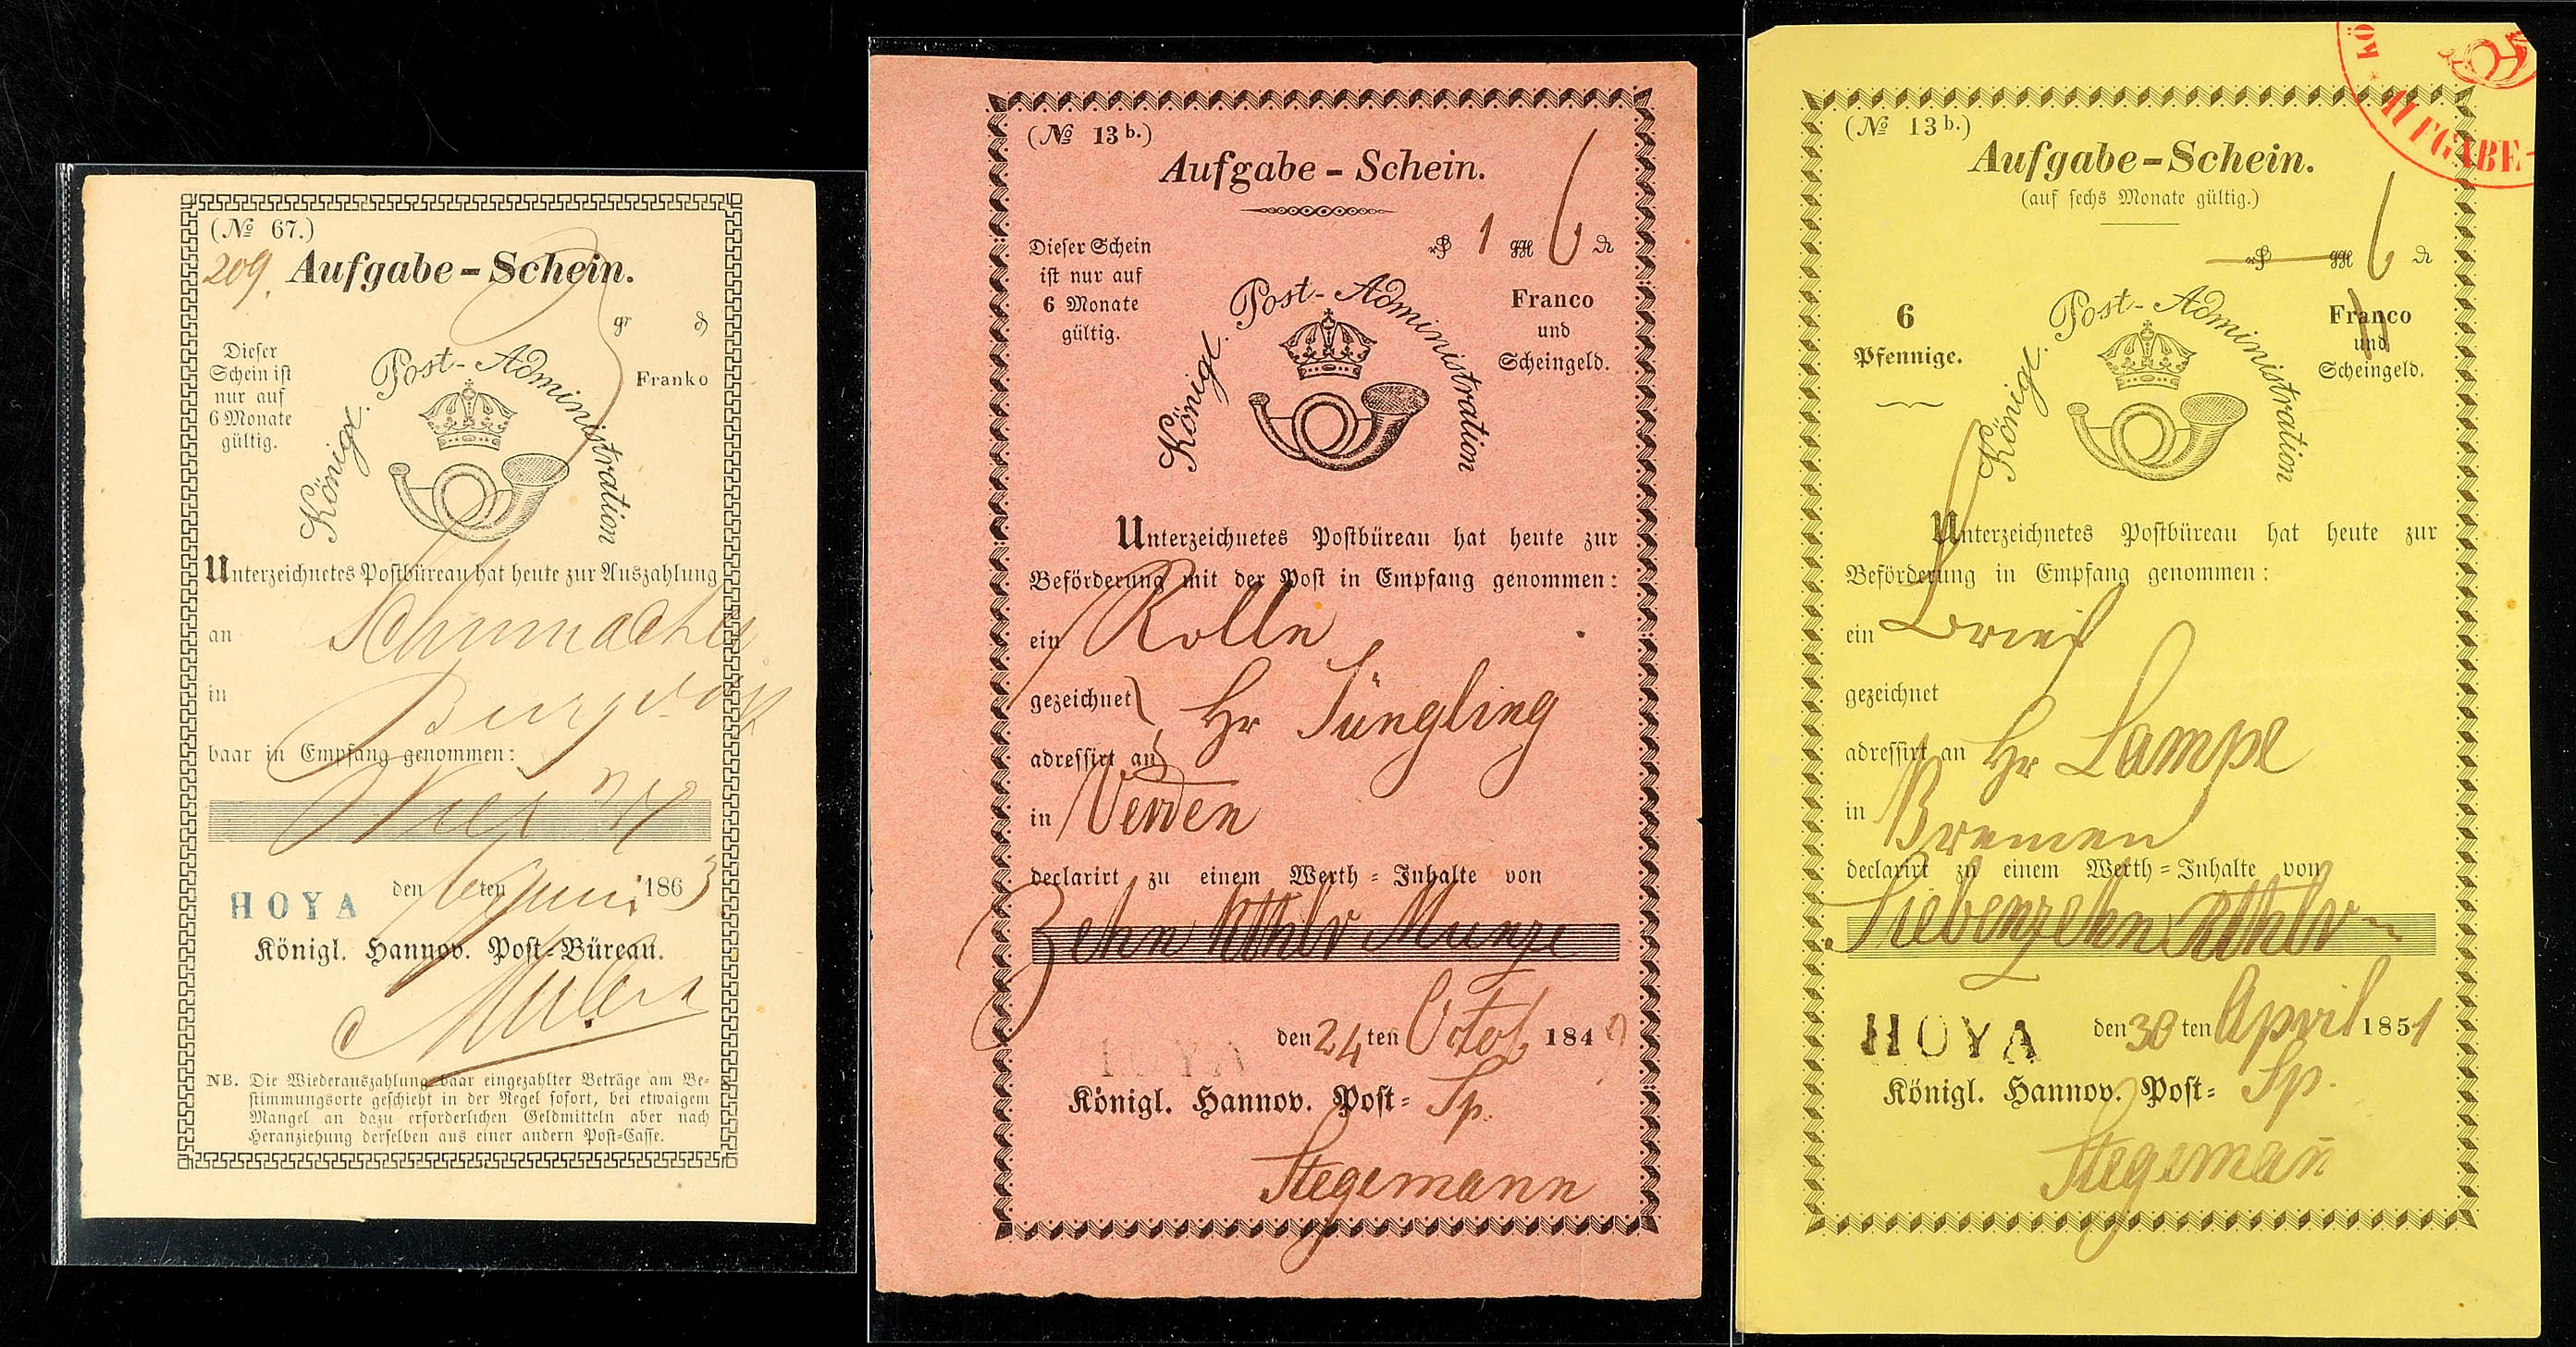 (№ 67.)
209.
Aufgabe-Schein.
gr
Dieser
Schein ist
nur auf
6 Monate
gültig.
Franko
Königl. Post-Administration
Unterzeichnetes Postbüreau hat heute zur Auszahlung
an Schumacher
in Burgdorf
baar in Empfang genommen:
HOYA
den 6ten Juni 1863
Königl. Hannov. Post-Büreau.
NB. Die Wiederauszahlung baar eingezahlter Beträge am Be=
stimmungsorte geschieht in der Regel sofort, bei etwaigem
Mangel an dazu erforderlichen Geldmitteln aber nach
Heranziehung derselben aus einer andern Post=Casse.
(№ 13b.)
Aufgabe-Schein.
1 ggr 6
Dieser Schein
ist nur auf
6 Monate
gültig.
Franco
und
Scheingeld.
Königl. Post-Administration
Unterzeichnetes Postbüreau hat heute zur
Beförderung mit der Post in Empfang genommen:
ein Rolle
gezeichnet
Hr Jüngling
adressirt an
in Verden
declarirt zu einem Werth=Inhalte von
Zehn Rthlr Munze
den 24ten Octob 184
HOYA
Königl. Hannov. Post= Sp.
Stegemann
KÖ
AUFGABE-
(№ 13b.)
Aufgabe-Schein.
(auf sechs Monate gültig.)
ggr 6
6
Pfennige.
Franco
und
Scheingeld.
Königl. Post-Administration
Unterzeichnetes Postbüreau hat heute zur
Beförderung in Empfang genommen:
ein Brief
gezeichnet
adressirt an Hr Lampe
in Bremen
declarirt zu einem Werth=Inhalte von
Siebenzehn Rthlr
HOYA
den 30ten April 1851
Königl. Hannov. Post= Sp.
Stegeman̄